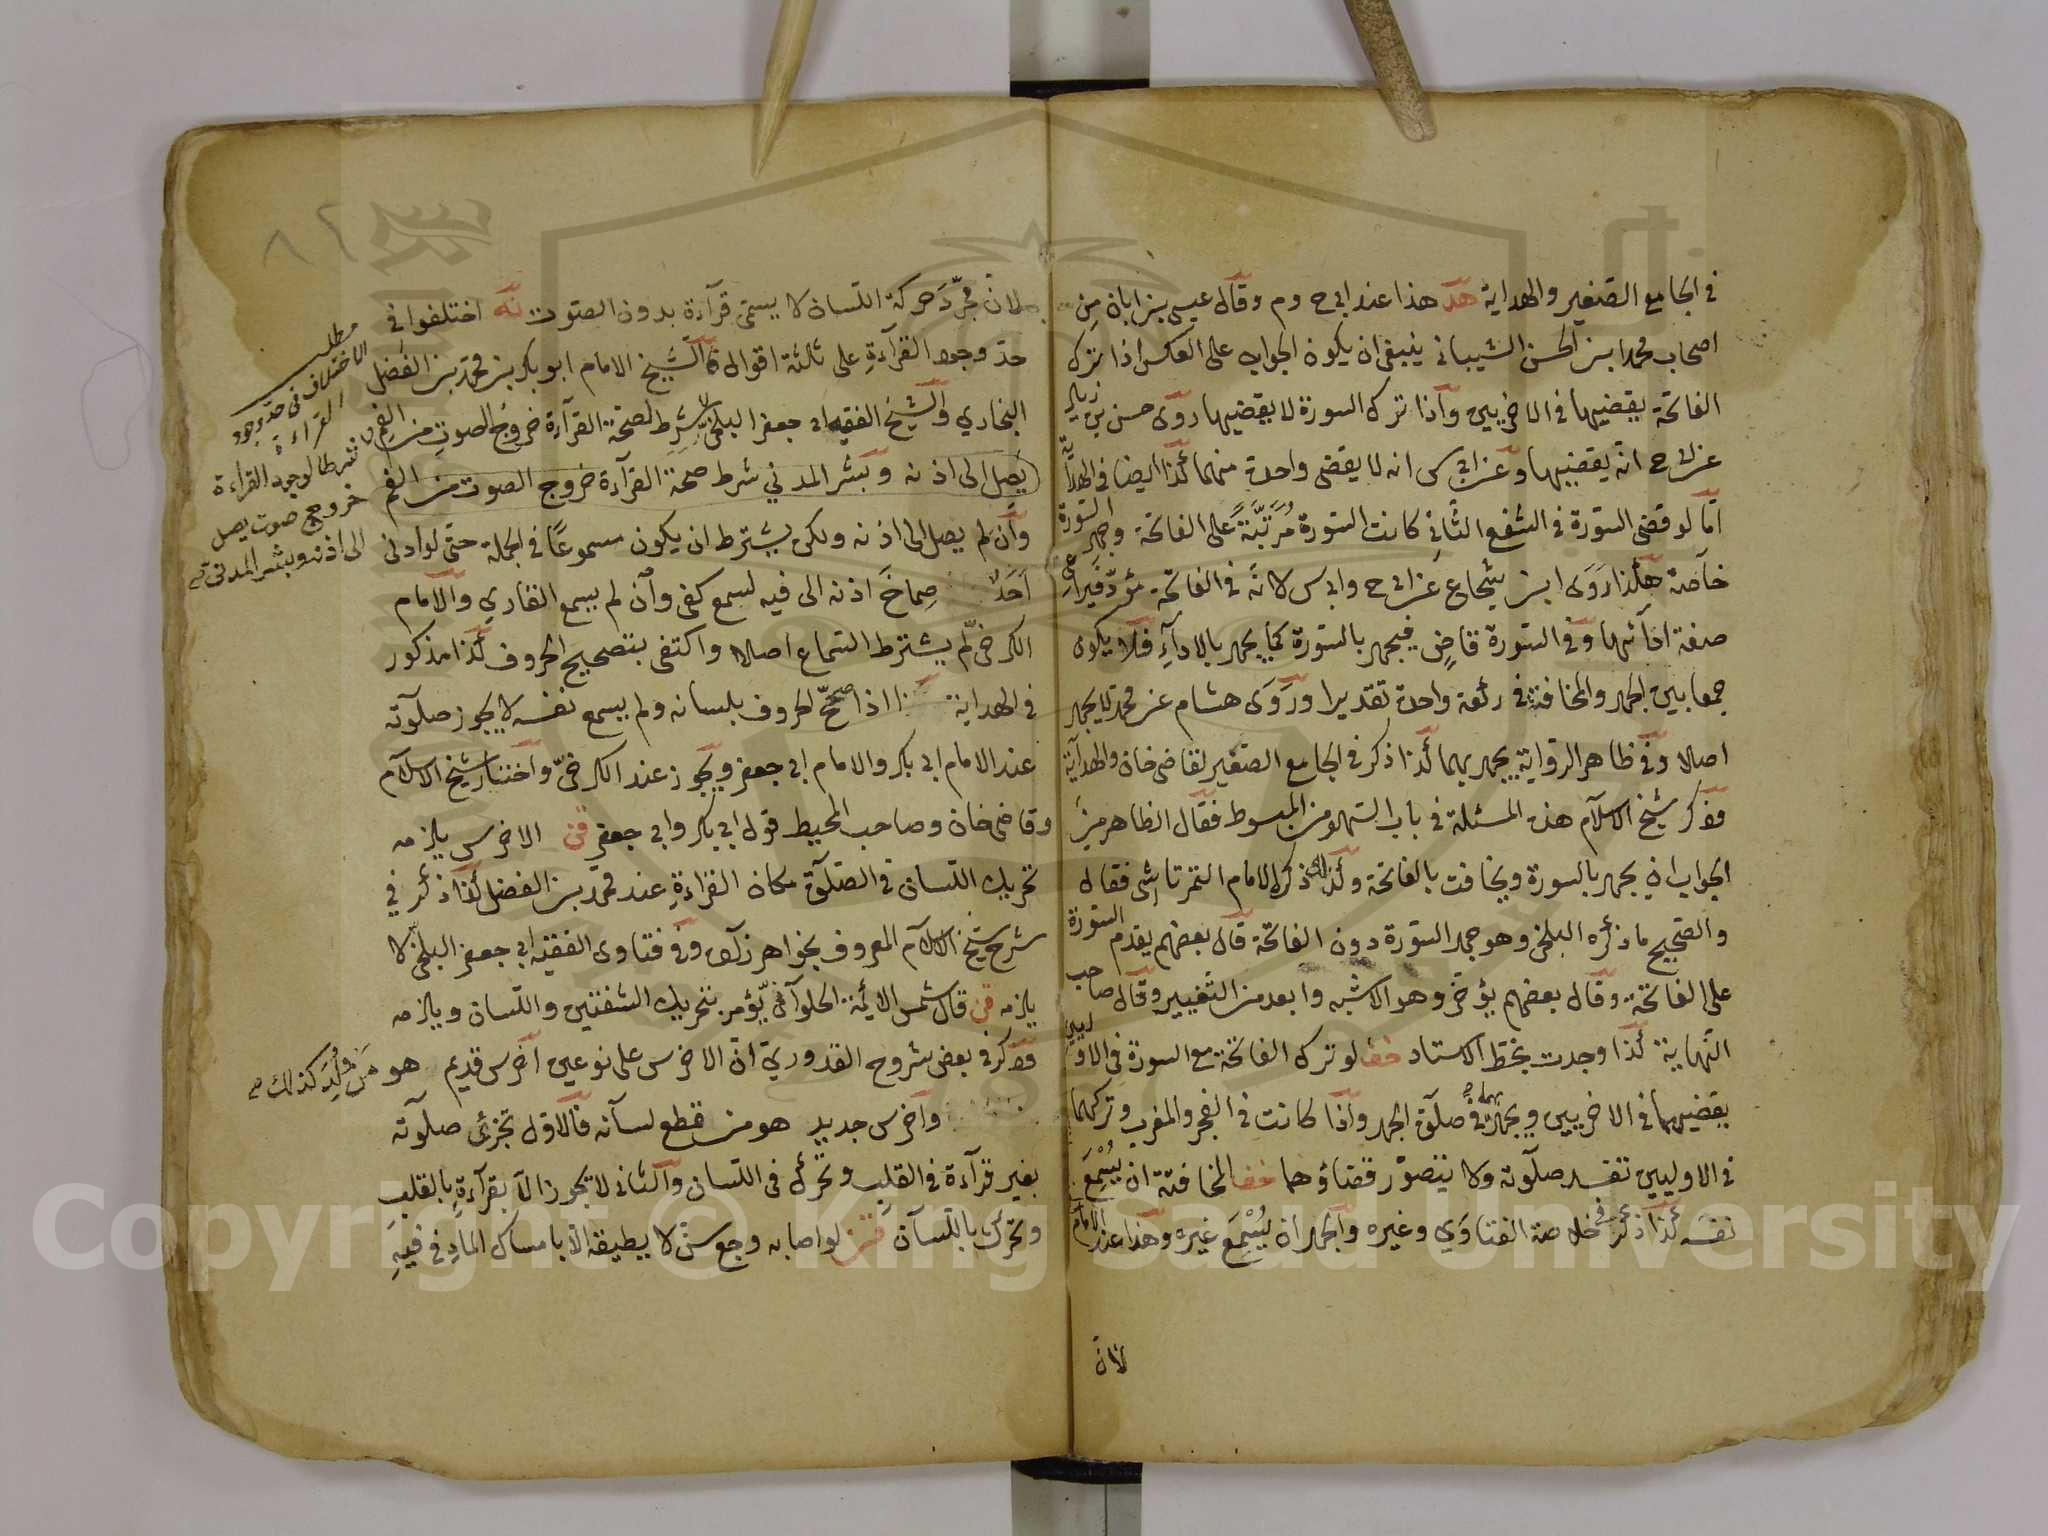 في الجامع الصغير والهداية هد هذا عند ابي ح وم وقال عيسى بن ابان من
اصحاب محمد ابن الحسن الشيباني ينبغي ان يكون الجواب على العكس اذا ترك
الفاتحة يقضيها في الاخريين واذا ترك السورة لا يقضيها روى حسن بن زياد
عن ابي ح انه يقضيها وعن ابي س انه لا يقضى واحدة منهما كذا ايضا في الهداية
امّا لو قضى السورة في الشفع الثاني كانت السورة مُرَتَّبَةً على الفاتحة وجهر السورة
خاصة هكذا رَوَى ابن شجاع عن ابي ح وابي س لانه في الفاتحة مؤدّ فيراعي
صفة ادائها وفي السورة قاضٍ فيجهر بالسورة كما يجهر بالاداء فلا يكون
جمعا بين الجهر والمخافتة في ركعة واحدة تقديرا وروَى هشام عن محمد لا يجهر
اصلا وفي ظاهر الرواية يجهر بهما كذا ذكر في الجامع الصغير لقاضي خان والهداية
وذكر شيخ الاسلام هذه المسئلة في باب السهو من المبسوط فقال الظاهر من
الجواب ان يجهر بالسورة ويخافت بالفاتحة وكذلك ذكره الامام التمرتاشي فقال
والصحيح ما ذكره البلخي وهو جهر السورة دون الفاتحة قال بعضهم يقدم السورة
على الفاتحة وقال بعضهم يؤخر وهو الاشبه وابعد من التغيير وقال صاحب
النهاية كذا وجدت بخط الاستاد خفا لو ترك الفاتحة مع السورة في الاوليين
يقضيهما في الاخريين ويجهر بهما في صلوة الجهر واذا كانت في الفجر والمغرب وتركهما
في الاوليين تفسد صلوته ولا يتصور قضاؤهما خفا المخافتة ان يُسْمِعَ
نفسه كذا ذكر في خلاصة الفتاوي وغيره والجهر ان يُسْمِعَ غيره وهذا عند الامام
لان
لان مجرّدَ حركة اللسان لا يسمى قرآءة بدون الصوت نه اختلفوا في
حدّ وجود القرآءةِ على ثلثة اقوال قال الشيخ الامام ابو بكر بن محمد بن الفضل
البخاري والشيخ الفقيه ابي جعفر البلخيّ شرط لصحة القرآءة خروجُ الصوتِ من الفم
يصل الى اذنه وبشر المدني شرط صحة القرآءة خروج الصوت من الفم
وان لم يصل الى اذنه ولكن يشترط ان يكون مسموعًا في الجملة حتى لو ادنى
اَحَدٌ صِماخَ اذنه الى فيه لسمع كفى وان لم يسمع القاري والامام
الكرخيّ لم يشترط السماع اصلا واكتفى بتصحيح الحروف كذا مذكور
في الهداية اذا صحّح الحروف بلسانه ولم يسمع نفسه لا يجوز صلوته
عند الامام ابي بكر والامام ابي جعفر ويجوز عند الكرخيّ واختار شيخ الاسلام
وقاضى خان وصاحب المحيط قول ابي بكر وابي جعفر قن الاخرس يلزمه
تحريك اللسان في الصلوة مكان القراءةِ عند محمّد بن الفضل كذا ذكر في
شرح شيخ الاسلام المعروف بخواهر زاده وفي فتاوى الفقيه ابي جعفر البلخي لا
يلزمه قن قال شمس الائمة الحلوآني يؤمر بتحريك الشفتين واللسان ويلزمه
وذكر في بعض شروح القدوريّ انّ الاخرس على نوعين اخرس قديم هو
واخرس جديد هو من قطع لسانه فالاول تجزئ صلوته
بغير قرآءة في القلب وتحرك في اللسان والثاني لا تجوز الا بقرآءةٍ بالقلب
وتحرك باللسان لو اصابه وجع سن لا يطيقه الا بامساك الماءِ في فيهِ
مطلب
الاختلاف في حدّ وجود
القراءة
شرطا لوجود القراءة
خروج صوت يصل
الى اذنه وبشر المدني
مَن وُلِدَ كذلك
٨٢
Copyright © King Saud University